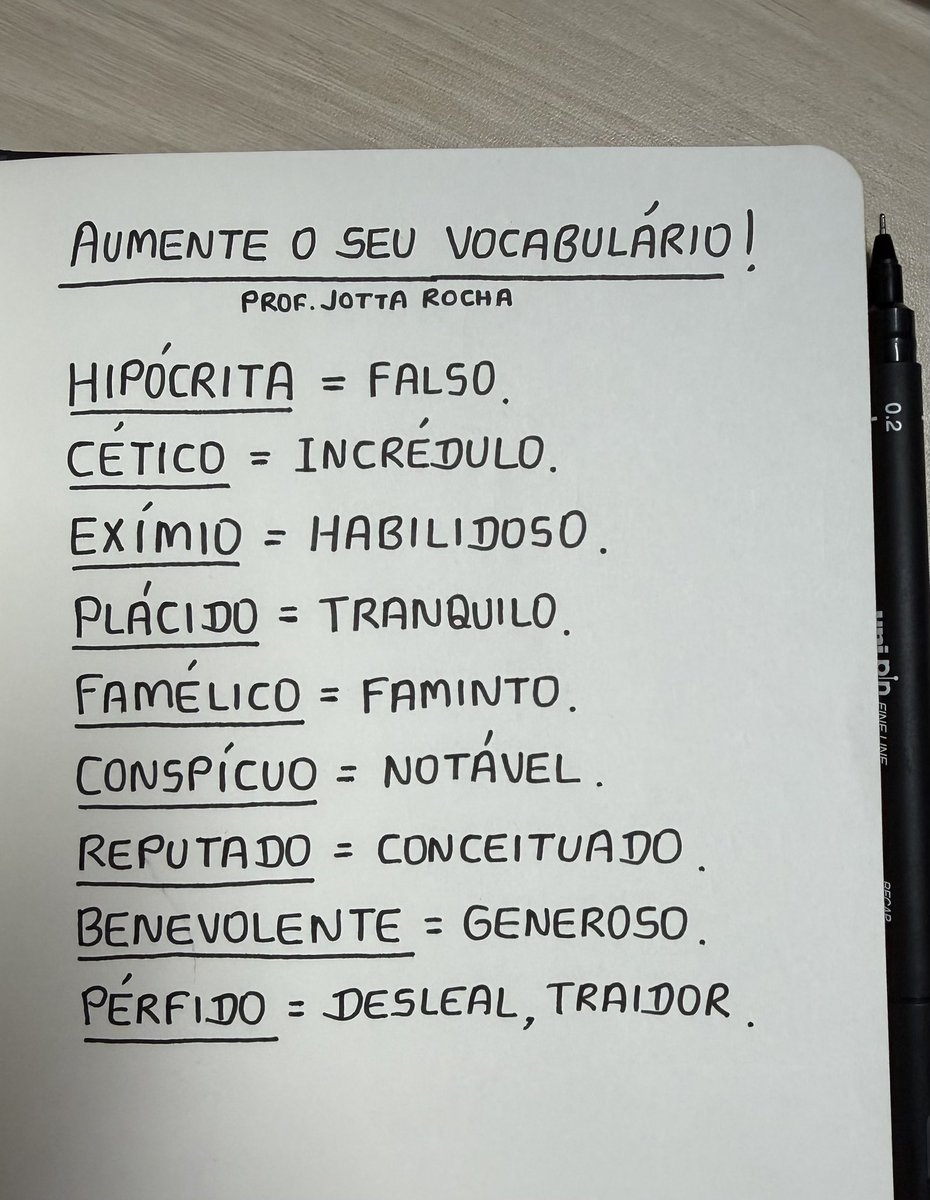 AUMENTE O SEU VOCABULÁRIO!
PROF. JOTTA ROCHA
HIPÓCRITA = FALSO.
CÉTICO = INCRÉDULO.
EXÍMIO = HABILIDOSO.
PLÁCIDO = TRANQUILO.
FAMÉLICO = FAMINTO.
CONSPÍCUO = NOTÁVEL.
REPUTADO = CONCEITUADO.
BENEVOLENTE = GENEROSO.
PÉRFIDO = DESLEAL, TRAIDOR.
0.2
uni pin FINE LINE